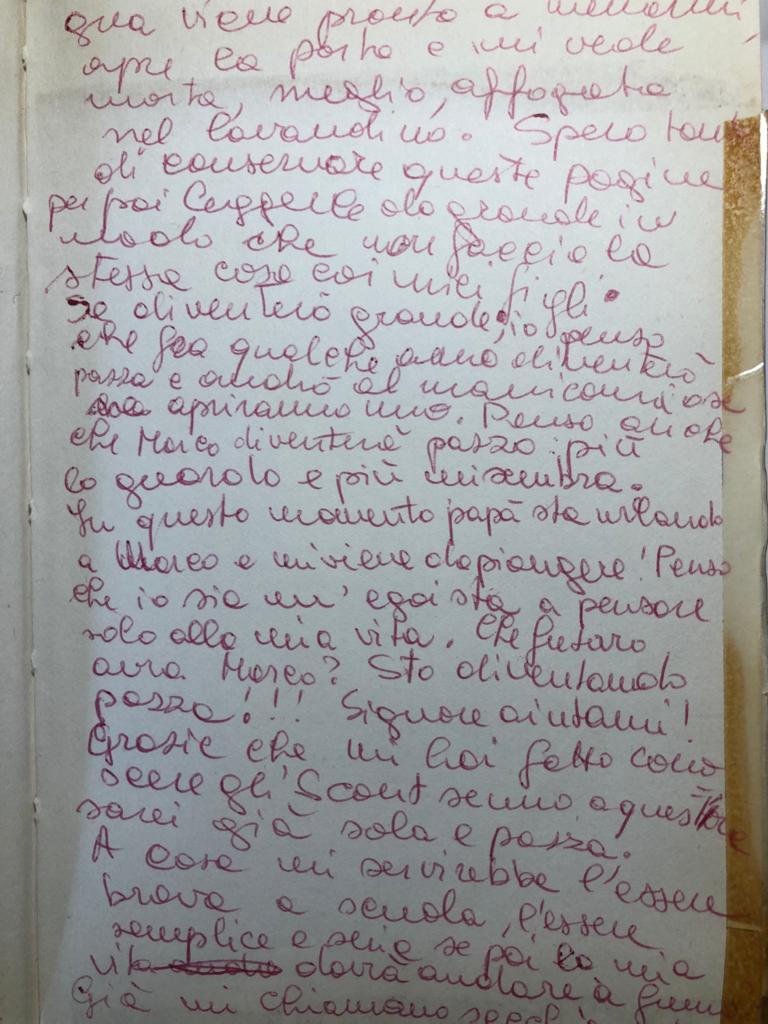 qua viene pronto a menarmi,
apre la porta e mi vede
morta, meglio, affogata
nel lavandino. Spero tanto
di conservare queste pagine
per poi leggerle da grande in
modo che non faccia la
stessa cosa coi miei figli.
Se diventerò grande, io penso
che fra qualche anno diventerò
pazza e andrò al manicomio se
apriranno uno. Penso anche
che Marco diventerà pazzo: più
lo guardo e più mi sembra.
In questo momento papà sta urlando
a Marco e mi viene da piangere! Penso
che io sia un'egoista a pensare
solo alla mia vita. Che futuro
avrà Marco? Sto diventando
pazza!!! Signore aiutami!
Grazie che mi hai fatto cono
scere gli Scout senno a quest'ore
sarei già sola e pazza.
A cosa mi servirebbe l'essere
brava a scuola, l'essere
semplice e seria se poi la mia
vita dovrà andare a
Già mi chiamano